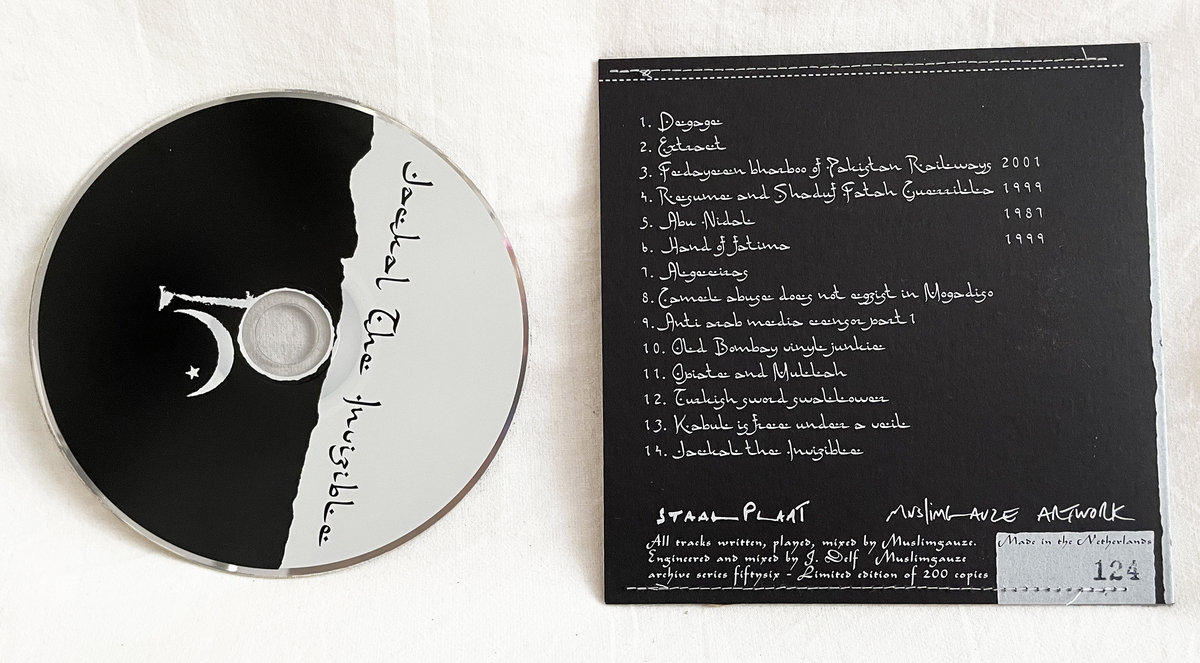 Jackal The Invizible
1. Degage
2. Extract
3. Fedayeen bharboo of Pakistan Railways 2001
4. Resume and Shaduf Fatah Guerrilla 1999
5. Abu Nidal 1987
6. Hand of fatima 1999
7. Algeciras
8. Camel abuse does not egzist in Mogadiso
9. Anti arab media censor part 1
10. Old Bombay vinyl junkie
11. Opiate and Mullah
12. Turkish sword swallower
13. Kabul is free under a veil
14. Jackal the Invizible
STAALPLAAT MUSLIMGAUZE ARTWORK
All tracks written, played, mixed by Muslimgauze.
Engineered and mixed by J. Delf Muslimgauze
archive series fiftysix - Limited edition of 200 copies
Made in the Netherlands
124